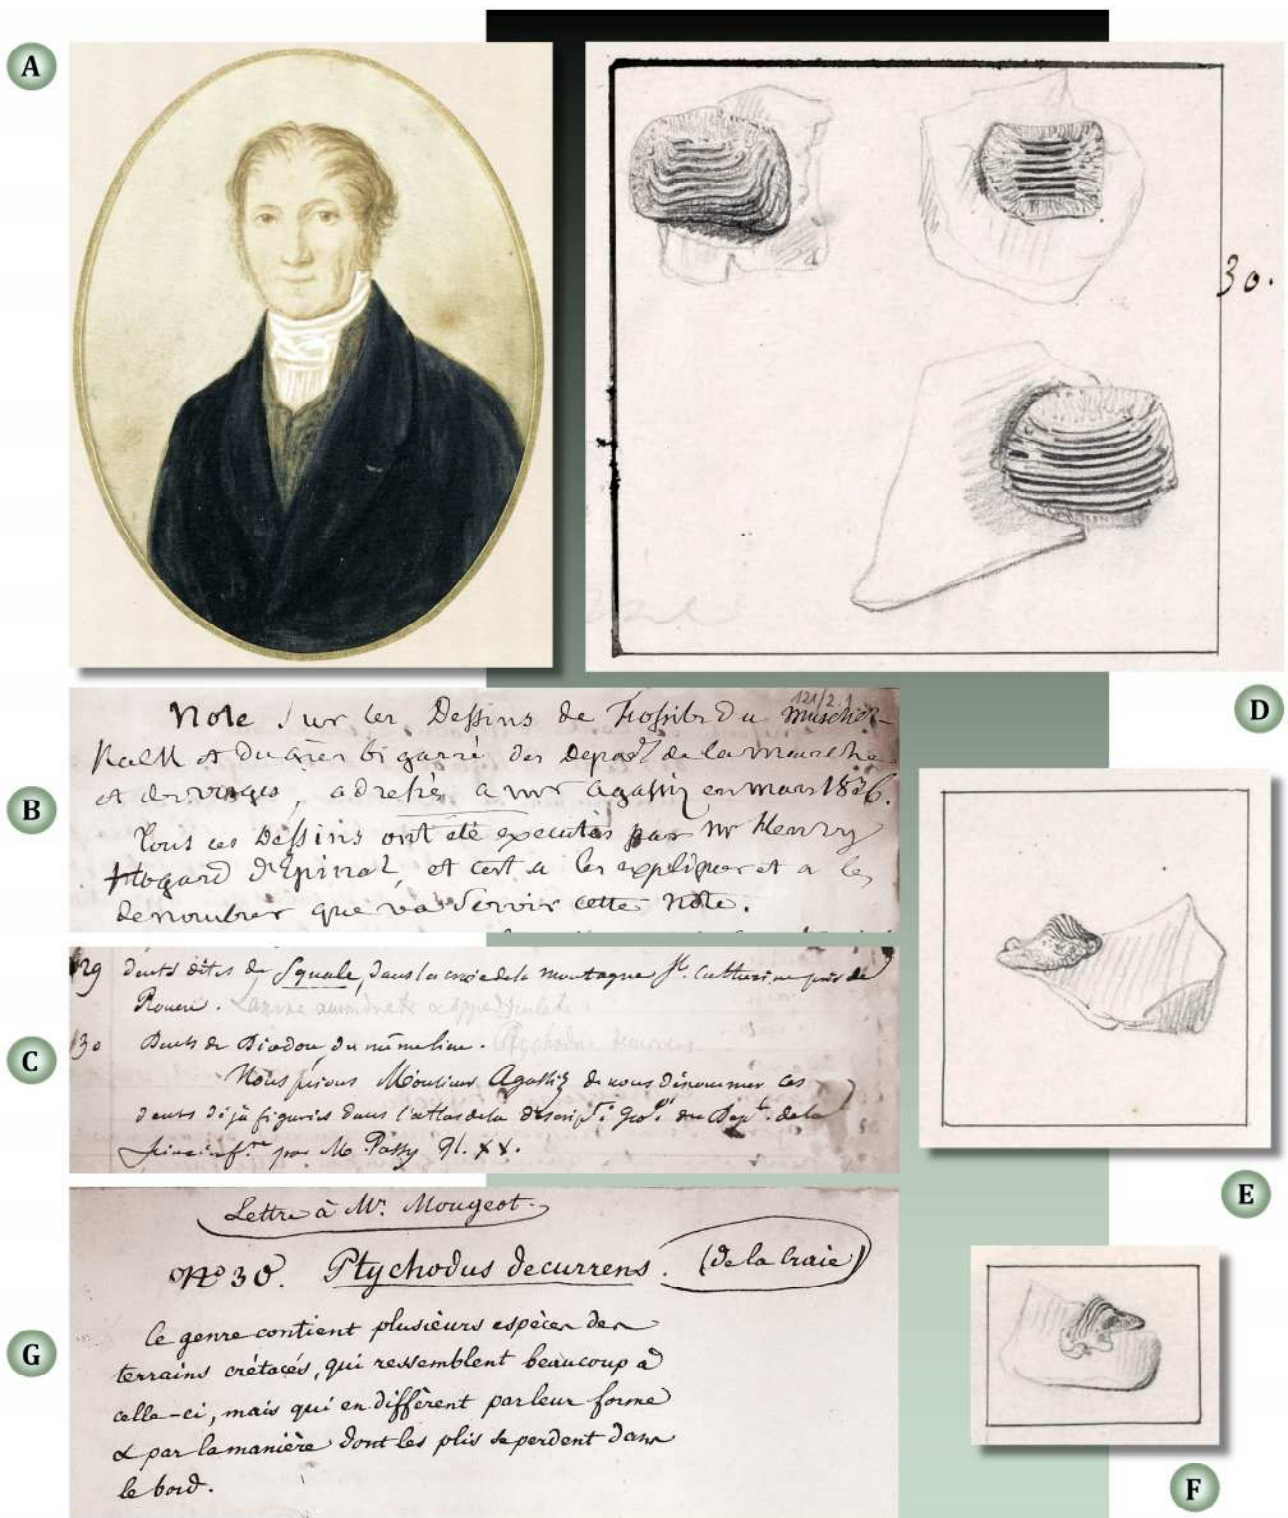 A
30.
D
121/2.1
Note sur les Dessins de Fossiles du Muschel-
Kalk et du Grès bigarré des Depts de la Meurthe
et des Vosges, adressés a mr Agassiz en mars 1836.
Tous ces Dessins ont été executés par Mr Henry
Hogard d'Epinal, et c'est a les expliquer et a les
denombrer que va servir cette Note.
B
29 dents dites de Squale, dans la craie de la montagne Ste. Catherine près de
Rouen. Lamna acuminata appendiculata
30 Dents de Diodon, du même lieu. Ptychodus decurrens
Nous prions Monsieur Agassiz de nous dénommer ces
dents déjà figurées dans l'atlas de la descript. Géol. du Dept. de la
Seine infre par Mr Passy Pl. XV.
C
E
Lettre à Mr. Mougeot.
No 30. Ptychodus decurrens. (de la Craie)
Ce genre contient plusieurs espèces des
terrains crétacés, qui ressemblent beaucoup à
celle-ci, mais qui en diffèrent par leur forme
& par la manière dont les plis se perdent dans
le bord.
G
F